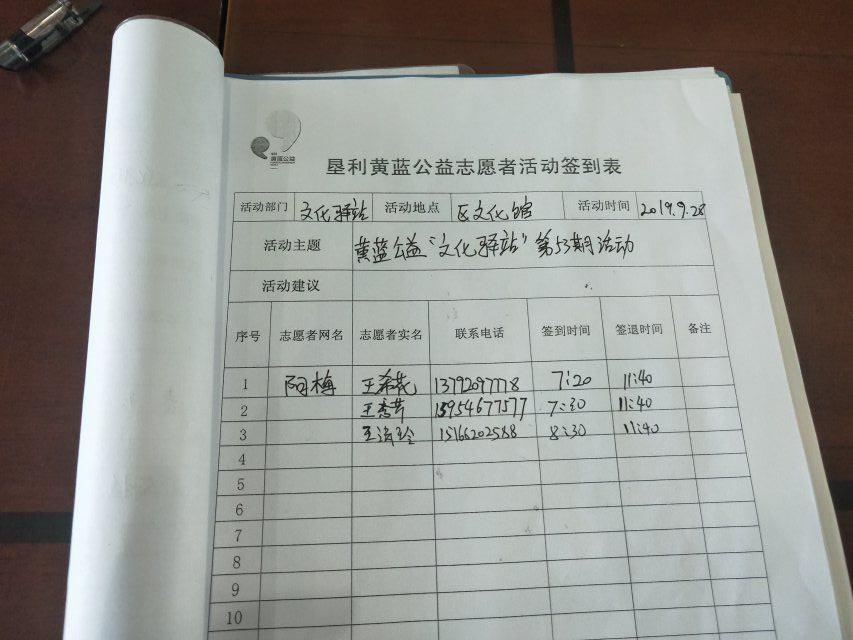 黄蓝公益
垦利黄蓝公益志愿者活动签到表
活动部门 文化驿站 活动地点 区文化馆 活动时间 2019.9.28
活动主题 黄蓝公益“文化驿站”第53期活动
活动建议
序号 志愿者网名 志愿者实名 联系电话 签到时间 签退时间 备注
1 阿梅 王希花 13792097778 7:20 11:40
2 王秀芹 13954677577 7:30 11:40
3 王海玲 15166202588 8:30 11:40
4
5
6
7
8
9
10